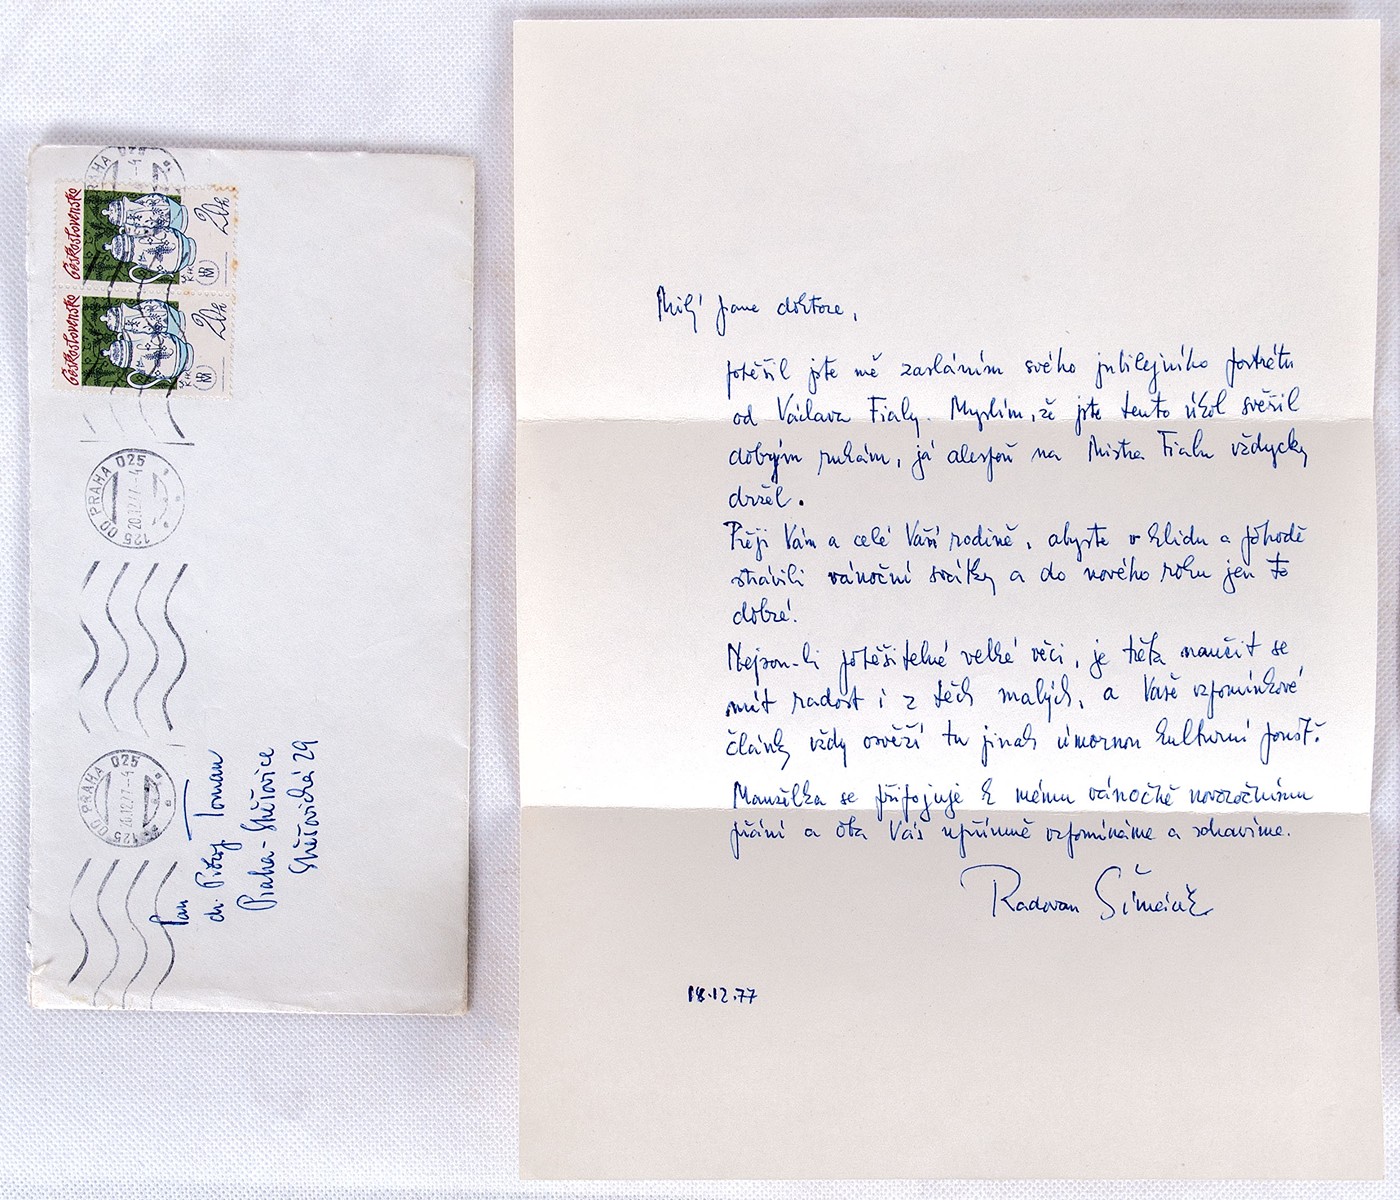 Československo
20h
Československo
20h
OD PRAHA 025
20.12.77-4
125
OD PRAHA 025
20.12.77-4
125
Pan
dr. Prokop Toman
Praha-Střešovice
Střešovická 29
Milý pane doktore,
potěšil jste mě zasláním svého jubilejního portrétu
od Václava Fialy. Myslím, že jste tento úkol svěřil
dobrým rukám, já alespoň na Mistra Fialu vždycky
držel.
Přeji Vám a celé Vaší rodině, abyste v klidu a pohodě
strávili vánoční svátky a do nového roku jen to
dobré!
Nejsou-li potěšitelné velké věci, je třeba naučit se
mít radost i z těch malých, a Vaše vzpomínkové
články vždy osvěží tu jinak úmornou kulturní poušť.
Manželka se připojuje k mému vánočně novoročnímu
přání a oba Vás upřímně vzpomínáme a zdravíme.
Radovan Šimáček
18.12.77